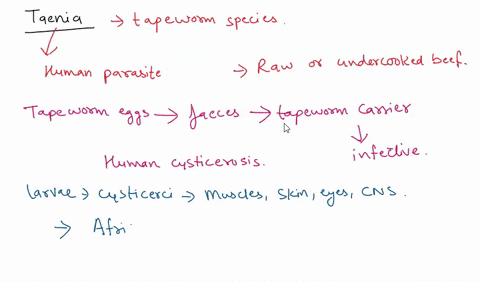 Taenia → tapeworm species.
Human parasite → Raw or undercooked beef.
Tapeworm eggs → faeces → tapeworm carrier
infective.
Human cysticerosis.
larvae → cysticerci → muscles, skin, eyes, CNS.
→ Afri